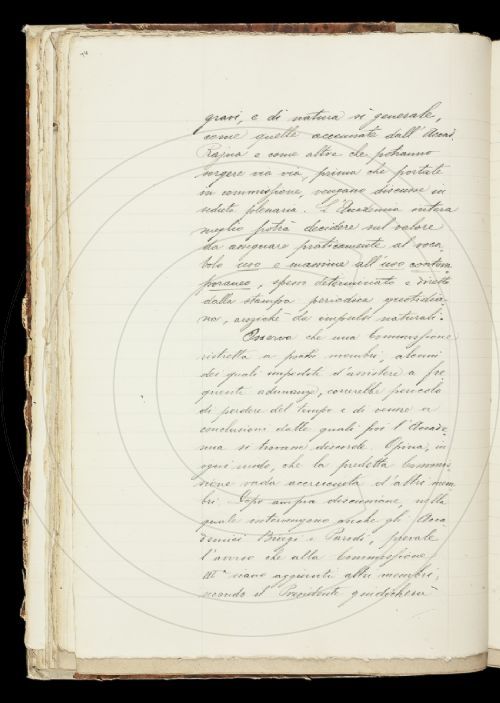 gravi, e di natura sì generale,
come quelle accennate dall'Accad.
Rajna e come altre che potranno
sorgere via via, prima che portate
in commissione, vengano discusse in
seduta plenaria. L'Accademia intera
meglio potrà decidere sul valore
da assegnare praticamente al voca-
bolo uso e massime all'uso contem-
poraneo, spesso determinato e diretto
dalla stampa periodica quotidia-
na, anziché da impulsi naturali.
Osserva che una Commissione
ristretta a pochi membri, alcuni
dei quali impediti d'assistere a fre
quenti adunanze, correrebbe pericolo
di perdere del tempo e di venire a
conclusioni dalle quali poi l'Accade-
mia si trovasse discorde. Opina, in
ogni modo, che la predetta Commis-
sione vada accresciuta d'altri mem
bri. Dopo ampia discussione, nella
quale intervengono anche gli Acca
demici Biagi e Parodi, prevale
l'avviso che alla Commissione
III.ª siano aggiunti altri membri,
secondo il Presidente giudicherà